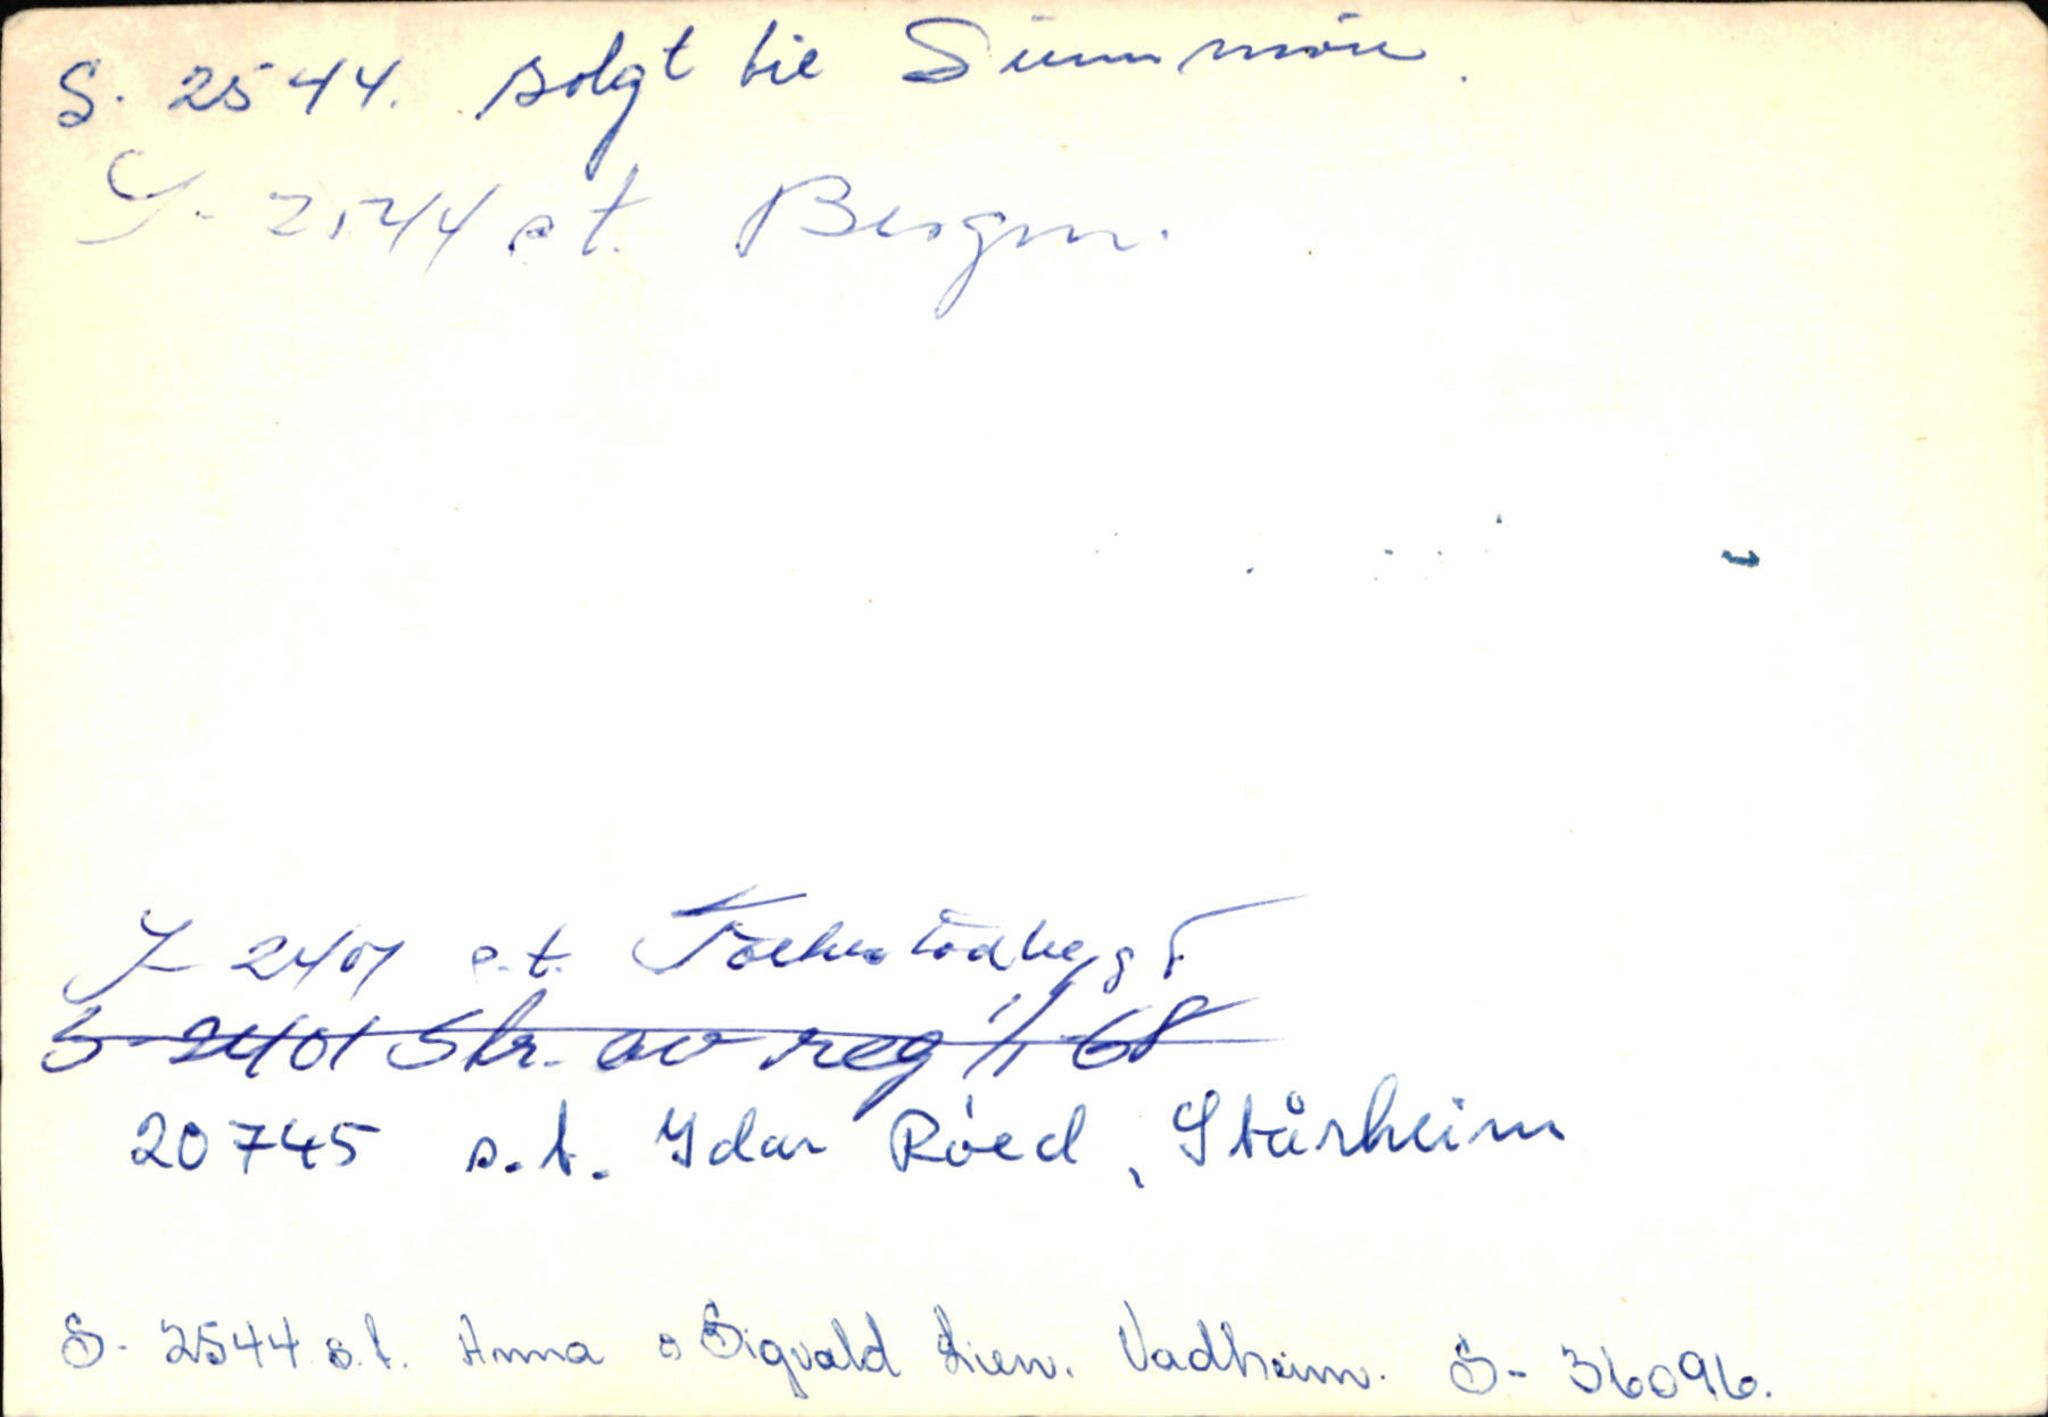 S. 2544. solgt til Sunnmöre.
S- 2544 s.t. Bergen.
S- 2401 s.t.
S- 2401 Str. av reg 1/1 68
20745 s.t. Idar Röed, Stårheim
S- 2544 s.t. Anna o Sigvald Lien. Vadheim. S- 36096.